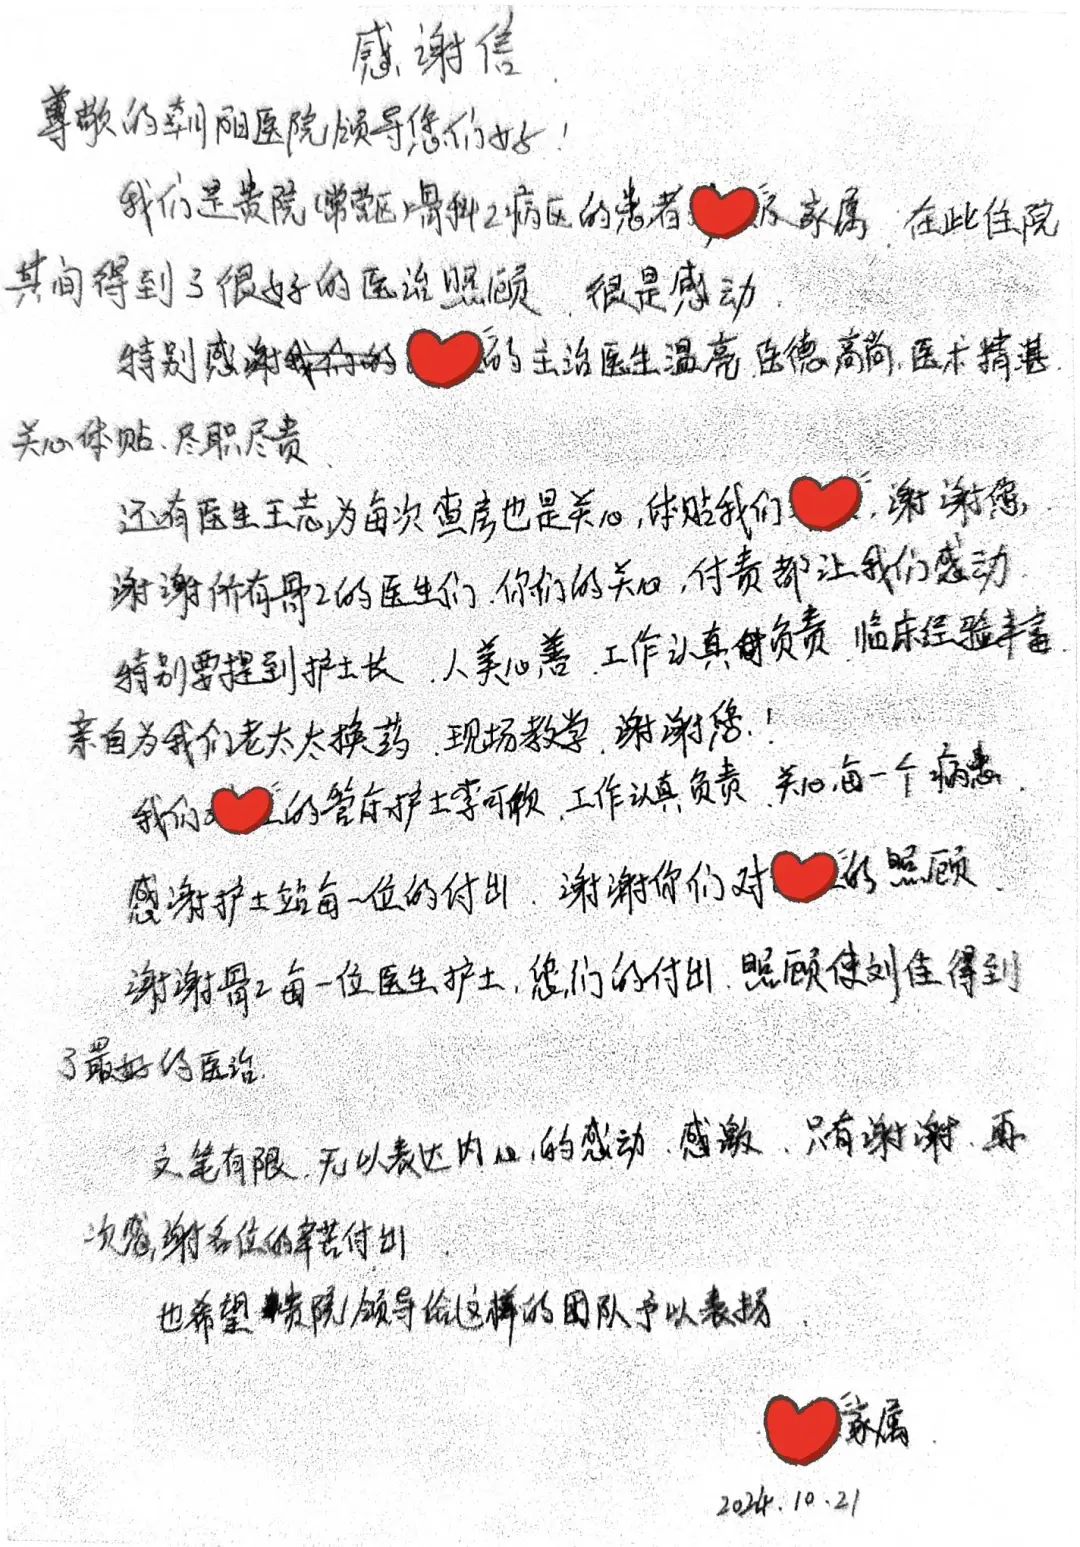 感谢信
尊敬的朝阳医院领导您们好！
我们是贵院(常营区)骨科2病区的患者 家属.在此住院
其间得到了很好的医治照顾.很是感动.
特别感谢 的主治医生温亮.医德高尚.医术精湛.
关心体贴.尽职尽责.
还有医生王志为每次查房也是关心,体贴我们 .谢谢您,
谢谢所有骨2的医生们.你们的关心,付责都让我们感动
特别要提到护士长.人美心善.工作认真负责.临床经验丰富.
亲自为我们老太太换药.现场教学.谢谢您.!
我们 的管床护士李可欣.工作认真负责.关心每一个病患.
感谢护士站每一位的付出.谢谢你们对 的照顾.
谢谢骨2每一位医生护士,您们的付出.照顾使刘佳得到
了最好的医治.
文笔有限.无以表达内心的感动.感激.只有谢谢.再
次感谢各位的辛苦付出
也希望贵院领导给这样的团队予以表扬.
家属.
2024.10.21